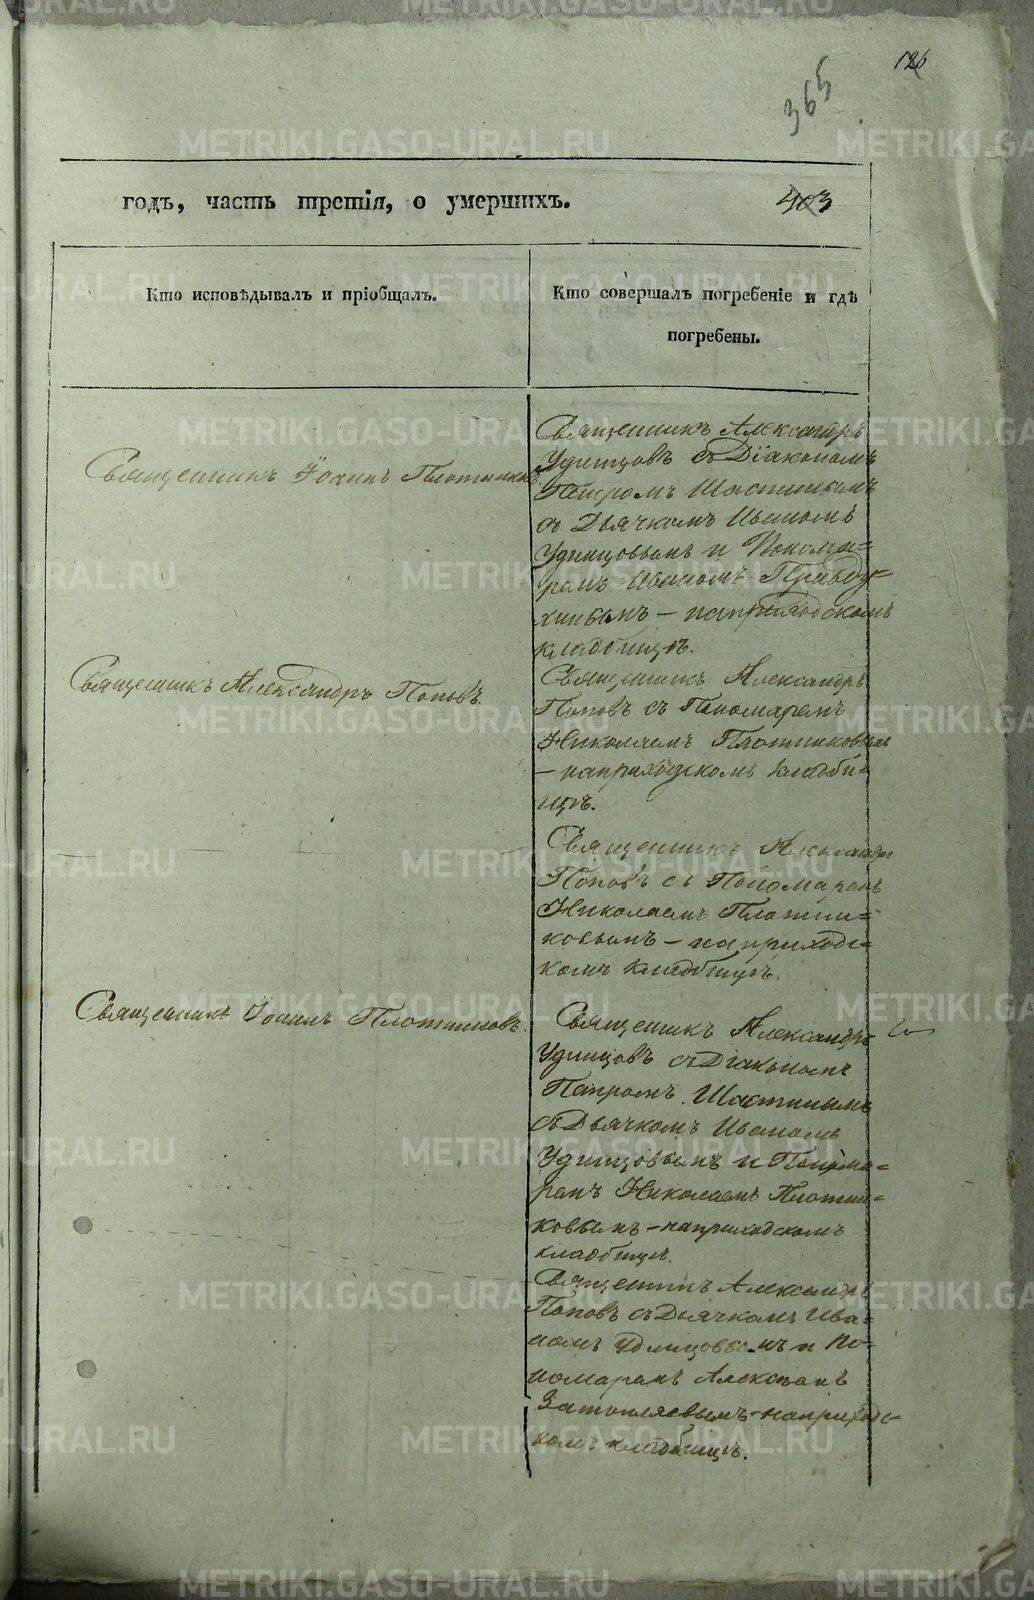 126
365
годъ, часть третія, о умершихъ.
403
Кто исповѣдывалъ и пріобщалъ.
Кто совершалъ погребеніе и гдѣ
погребены.
Священникъ Іоаннъ Плотниковъ
Священникъ Александръ
Удинцовъ съ Діакономъ
Петромъ Шастинымъ
съ Дьячкомъ Иваномъ
Удинцовымъ и Понома=
ремъ Иваномъ
– на приходскомъ
кладбищѣ.
Священникъ Александръ Поповъ.
Священникъ Александръ
Поповъ съ Пономаремъ
Николаемъ Плотниковымъ
– на приходскомъ кладби=
щѣ.
Священникъ Александръ
Поповъ съ Пономаремъ
Николаемъ Плотни=
ковымъ – на приходс=
комъ кладбищѣ.
Священникъ Іоаннъ Плотниковъ.
Священникъ Александръ
Удинцовъ съ Діакономъ
Петромъ Шастинымъ
съ Дьячкомъ Иваномъ
Удинцовымъ и Понома=
ремъ Николаемъ Плотни=
ковымъ – на приходскомъ
кладбищѣ.
Священникъ Александръ
Поповъ съ Дьячкомъ Ива=
номъ Удинцовымъ и По=
номаремъ
Затопляевымъ – на приходс=
комъ кладбищѣ.
METRIKI.GASO-URAL.RU